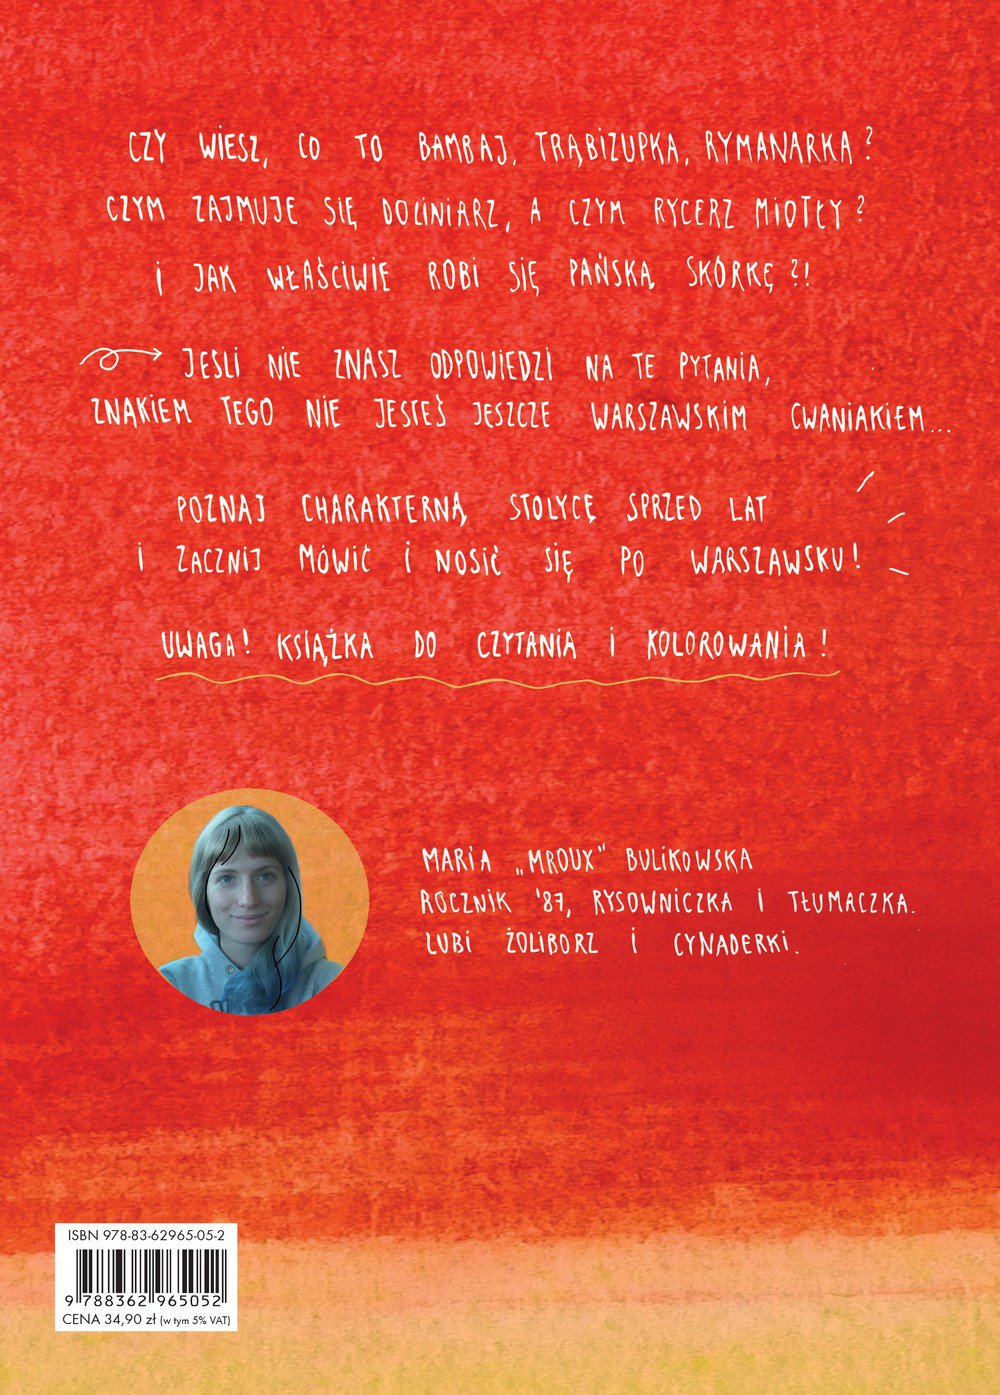 CZY WIESZ, CO TO BAMBAJ, TRĄBIZUPKA, RYMANARKA?
CZYM ZAJMUJE SIĘ DOLINIARZ, A CZYM RYCERZ MIOTŁY?
I JAK WŁAŚCIWIE ROBI SIĘ PAŃSKĄ SKÓRKĘ?!
JEŚLI NIE ZNASZ ODPOWIEDZI NA TE PYTANIA,
ZNAKIEM TEGO NIE JESTEŚ JESZCZE WARSZAWSKIM CWANIAKIEM...
POZNAJ CHARAKTERNĄ STOLYCĘ SPRZED LAT
I ZACZNIJ MÓWIĆ I NOSIĆ SIĘ PO WARSZAWSKU!
UWAGA! KSIĄŻKA DO CZYTANIA I KOLOROWANIA!
MARIA „MROUX" BULIKOWSKA
ROCZNIK '87, RYSOWNICZKA I TŁUMACZKA.
LUBI ŻOLIBORZ I CYNADERKI.
ISBN 978-83-62965-05-2
9 788362 965052
CENA 34,90 zł (w tym 5% VAT)